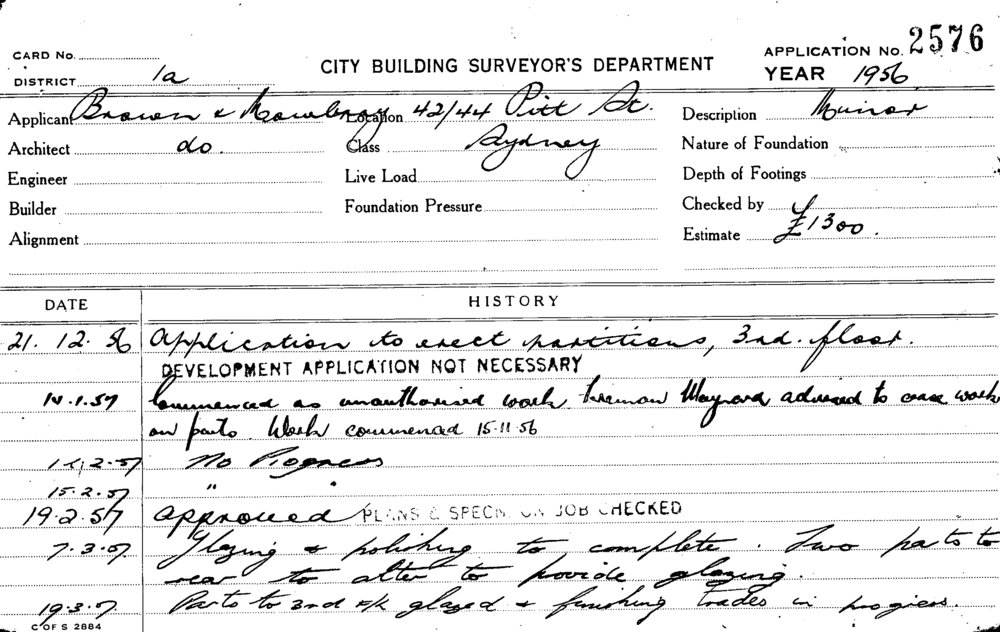 CARD No.
DISTRICT 1a
CITY BUILDING SURVEYOR'S DEPARTMENT
APPLICATION No. 2576
YEAR 1956
Applicant Brown & Mowbray Location 42/44 Pitt St. Description Minor
Architect do. Class Sydney Nature of Foundation
Engineer Live Load Depth of Footings
Builder Foundation Pressure Checked by
Alignment Estimate £1300.
DATE HISTORY
21. 12. 56 Application to erect partitions, 3rd. floor.
DEVELOPMENT APPLICATION NOT NECESSARY
.1.57 Commenced as unauthorised work. foreman Maynard advised to cease work
on parts. Work commenced 15.11.56
.2.57 No Progress
15.2.57 " "
19.2.57 Approved PLANS & SPECN. ON JOB CHECKED
7.3.57 Glazing & polishing to complete. Two parts to
rear to alter to provide glazing.
19.3.7. Parts to 3rd glazed & finishing trades in progress.
C OF S 2884